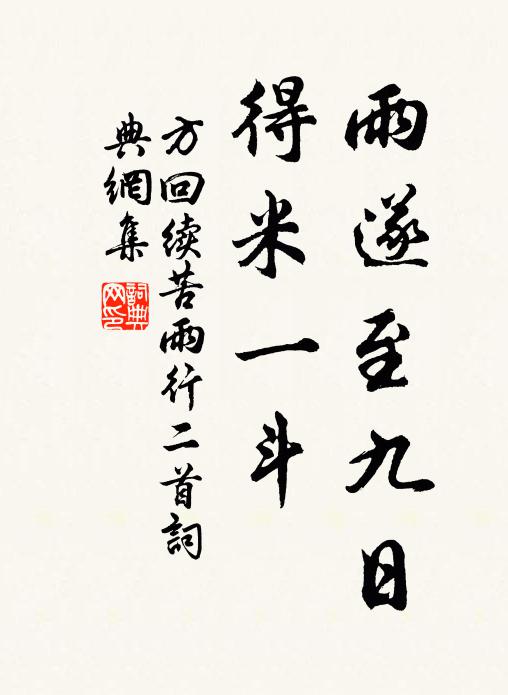 雨遂至九日
得米一斗
方回續苦雨行二首詞
典網集
詞典
网印